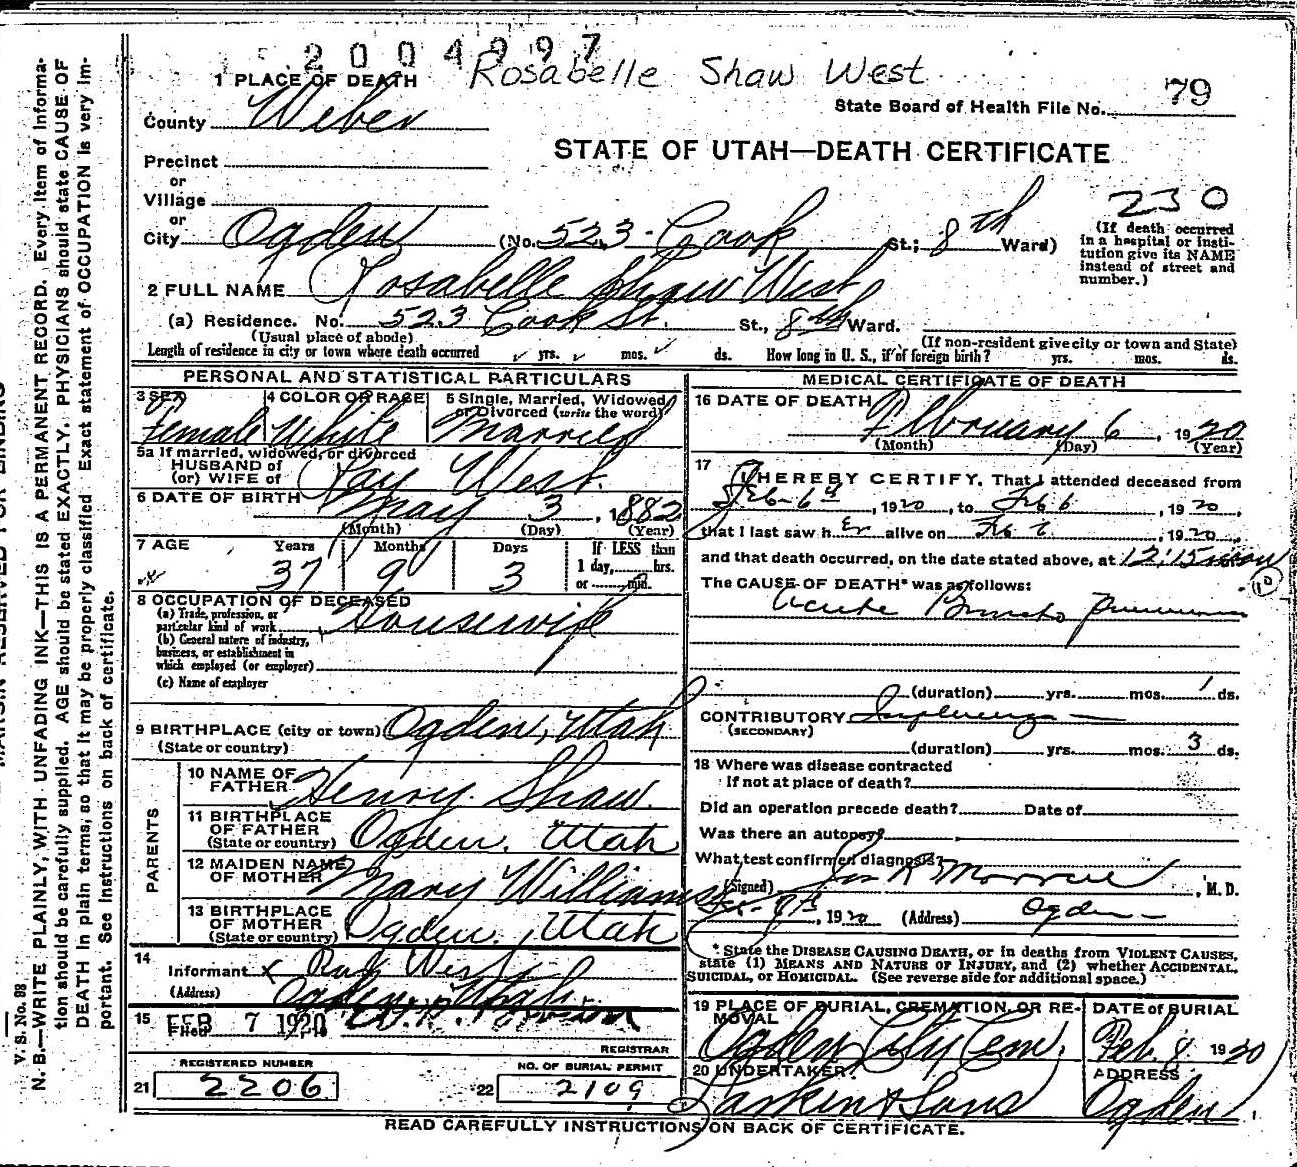 2004997
Rosabelle Shaw West
1 PLACE OF DEATH
State Board of Health File No. 79
County Weber
STATE OF UTAH—DEATH CERTIFICATE
Precinct
or
Village
or
City Ogden (No. 523 Cook St.; 8th Ward)
230
(If death occurred
in a hospital or insti-
tution give its NAME
instead of street and
number.)
2 FULL NAME Rosabelle Shaw West
(a) Residence. No. 523 Cook St. St., 8th Ward.
(Usual place of abode) (If non-resident give city or town and State)
Length of residence in city or town where death occurred yrs. mos. ds. How long in U. S., if of foreign birth? yrs. mos. ds.
PERSONAL AND STATISTICAL PARTICULARS
3 SEX 4 COLOR OR RACE 5 Single, Married, Widowed
or Divorced (write the word)
Female White Married
5a If married, widowed, or divorced
HUSBAND of
(or) WIFE of Ray West.
6 DATE OF BIRTH May 3, 1882
(Month) (Day) (Year)
7 AGE Years Months Days If LESS than
1 day, hrs.
37 9 3 or min.
8 OCCUPATION OF DECEASED
(a) Trade, profession, or
particular kind of work Housewife
(b) General nature of industry,
business, or establishment in
which employed (or employer)
(c) Name of employer
9 BIRTHPLACE (city or town) Ogden, Utah
(State or country)
PARENTS
10 NAME OF
FATHER Henry Shaw.
11 BIRTHPLACE
OF FATHER
(State or country) Ogden, Utah
12 MAIDEN NAME
OF MOTHER Mary Williams
13 BIRTHPLACE
OF MOTHER
(State or country) Ogden, Utah
14
Informant Ray West
(Address) Ogden, Utah
15 Filed FEB 7 1920
REGISTRAR
REGISTERED NUMBER NO. OF BURIAL PERMIT
21 2206 22 2109
MEDICAL CERTIFICATE OF DEATH
16 DATE OF DEATH
February 6, 1920
(Month) (Day) (Year)
17 I HEREBY CERTIFY, That I attended deceased from
Feb-6th, 1920, to Feb 6, 1920,
that I last saw her alive on Feb 6, 1920,
and that death occurred, on the date stated above, at 12:15
The CAUSE OF DEATH* was as follows:
10
Acute Broncho Pneumonia
(duration) yrs. mos. 1 ds.
CONTRIBUTORY Influenza
(SECONDARY)
(duration) yrs. mos. 3 ds.
18 Where was disease contracted
If not at place of death?
Did an operation precede death? Date of
Was there an autopsy?
What test confirmed diagnosis?
(Signed) Jos R Morrell, M. D.
1920 (Address) Ogden
* State the DISEASE CAUSING DEATH, or in deaths from VIOLENT CAUSES,
state (1) MEANS AND NATURE OF INJURY, and (2) whether ACCIDENTAL,
SUICIDAL, or HOMICIDAL. (See reverse side for additional space.)
19 PLACE OF BURIAL, CREMATION, OR RE-
MOVAL DATE of BURIAL
Ogden City Cem. Feb. 8 1920
20 UNDERTAKER ADDRESS
Larkin & Sons Ogden
READ CAREFULLY INSTRUCTIONS ON BACK OF CERTIFICATE.
V. S. No. 98.
N. B.—WRITE PLAINLY, WITH UNFADING INK—THIS IS A PERMANENT RECORD. Every item of informa-
tion should be carefully supplied. AGE should be stated EXACTLY. PHYSICIANS should state CAUSE OF
DEATH in plain terms, so that it may be properly classified. Exact statement of OCCUPATION is very im-
portant. See instructions on back of certificate.
MARGIN RESERVED FOR BINDING